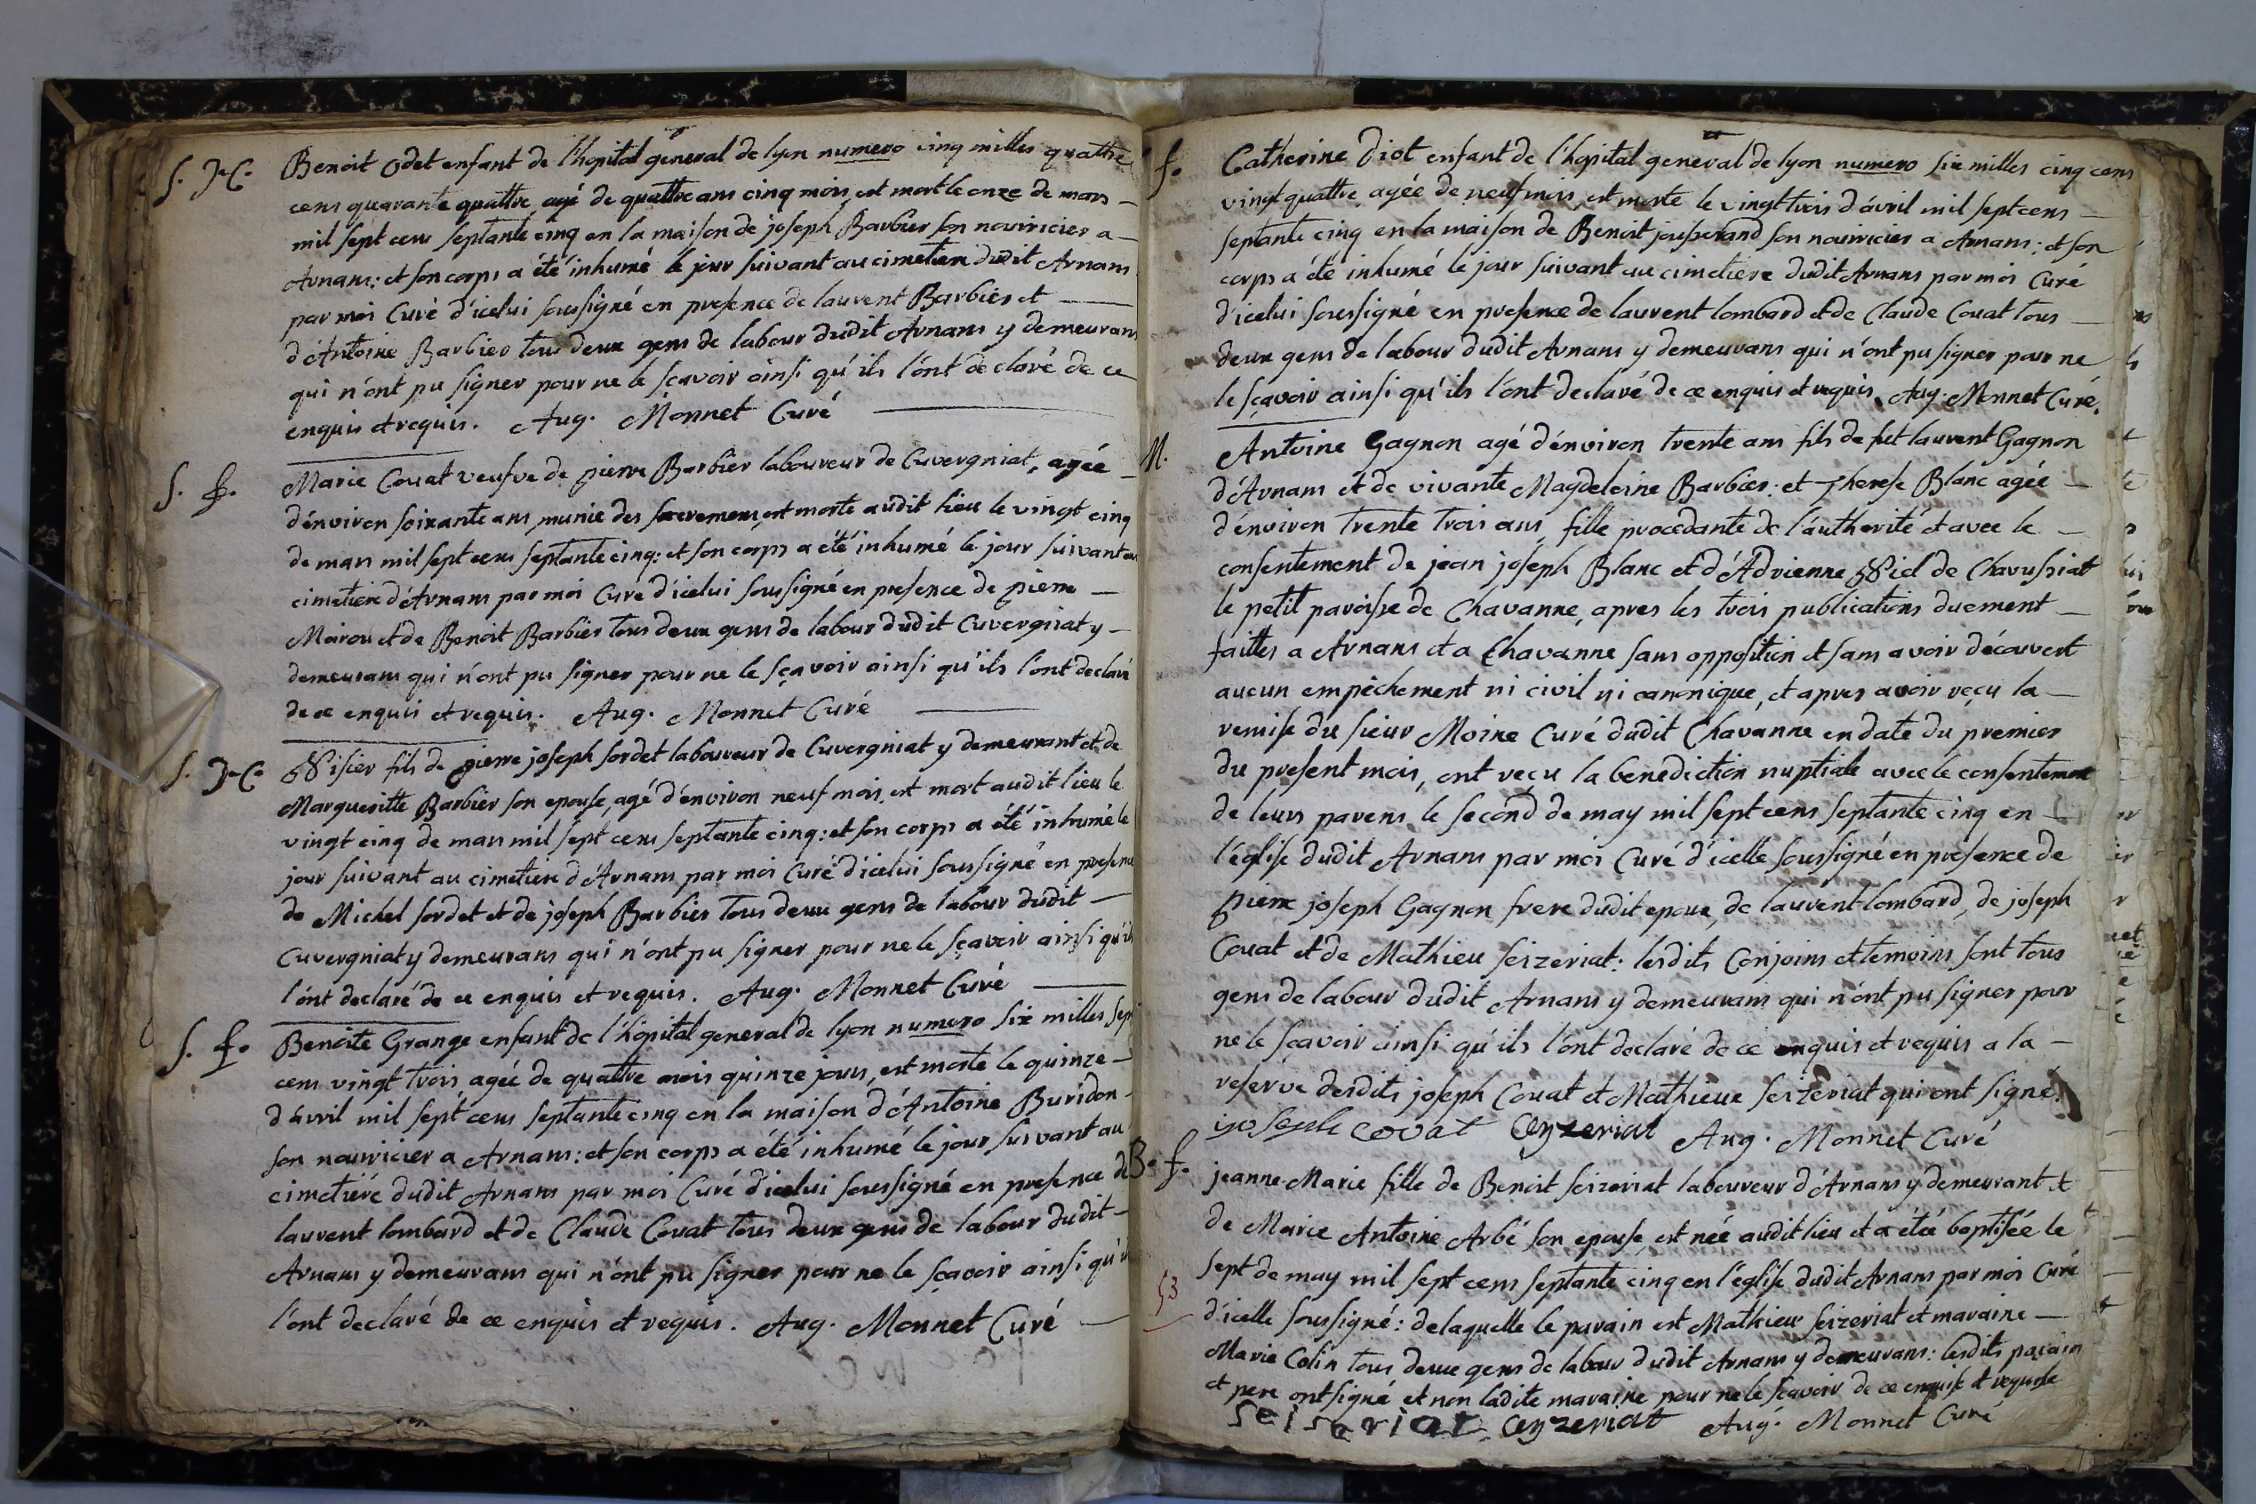 S. J.C. Benoit Odet enfant de l'hopital general de lyon numero cinq milles quattre
cens quarante quattre, agé de quattre ans cinq mois, est mort le onze de mars —
mil sept cens septante cinq en la maison de joseph Barbier son nourricier a —
Arnans: et son corps a été inhumé le jour suivant au cimetiere dudit Arnans
par moi Curé d'icelui soussigné en presence de laurent Barbier et —
d'Antoine Barbier tous deux gens de labour dudit Arnans y demeurans
qui n'ont pu signer pour ne le sçavoir ainsi qu'ils l'ont declaré de ce
enquis et requis. Aug. Monnet Curé —
S. f. Marie Couat veufve de pierre Barbier laboureur de Cuvergniat, agée —
d'environ soixante ans, munie des sacremens, est morte audit lieu le vingt cinq
de mars mil sept cens septante cinq: et son corps a été inhumé le jour suivant au
cimetiere d'Arnans par moi Curé d'icelui soussigné en presence de pierre —
Mairou et de Benoit Barbier tous deux gens de labour dudit Cuvergniat y —
demeurans qui n'ont pu signer pour ne le sçavoir ainsi qu'ils l'ont declaré
de ce enquis et requis. Aug. Monnet Curé —
S. J.C. fils de pierre joseph sordet laboureur de Cuvergniat y demeurant et de
Margueritte Barbier son epouse, agé d'environ neuf mois, est mort audit lieu le
vingt cinq de mars mil sept cens septante cinq: et son corps a été inhumé le
jour suivant au cimetiere d'Arnans par moi Curé d'icelui soussigné en presence
de Michel sordet et de joseph Barbier tous deux gens de labour dudit —
Cuvergniat y demeurans qui n'ont pu signer pour ne le sçavoir ainsi qu'ils
l'ont declaré de ce enquis et requis. Aug. Monnet Curé —
S. f. Benoite Grange enfant de l'hôpital general de lyon numero six milles sept
cens vingt trois, agée de quattre mois quinze jours, est morte le quinze —
d'avril mil sept cens septante cinq en la maison d'Antoine Buridon —
son nourricier a Arnans: et son corps a été inhumé le jour suivant au
cimetiére dudit Arnans par moi Curé d'icelui soussigné en presence de
laurent lombard et de Claude Couat tous deux gens de labour dudit —
Arnans y demeurans qui n'ont pu signer pour ne le sçavoir ainsi qu'ils
l'ont declaré de ce enquis et requis. Aug. Monnet Curé —
f. Catherine Diot enfant de l'hopital general de lyon numero six milles cinq cens
vingt quattre, agée de neuf mois, est morte le vingt trois d'avril mil sept cens —
septante cinq en la maison de Benoit jousserand son nourricier a Arnans: et son
corps a été inhumé le jour suivant au cimetiere dudit Arnans par moi Curé
d'icelui soussigné en presence de laurent lombard et de Claude Couat tous —
deux gens de labour dudit Arnans y demeurans qui n'ont pu signer pour ne
le sçavoir ainsi qu'ils l'ont declaré de ce enquis et requis. Aug. Monnet Curé.
M. Antoine Gagnon agé d'environ trente ans fils de fut laurent Gagnon
d'Arnans et de vivante Magdeleine Barbier: et Therese Blanc agée —
d'environ trente trois ans, fille procedante de l'autherité et avec le —
consentement de jean joseph Blanc et d'Adrienne de Chavussiat
le petit paroisse de Chavanne, apres les trois publications duement —
faittes a Arnans et a Chavanne sans opposition et sans avoir découvert
aucun empêchement ni civil ni canonique, et apres avoir reçu la —
remise du sieur Moine Curé dudit Chavanne en date du premier
du present mois, ont reçu la benediction nuptiale avec le consentement
de leurs parens le second de may mil sept cens septante cinq en —
l'église dudit Arnans par moi Curé d'icelle soussigné en presence de
pierre joseph Gagnon frere dudit epoux, de laurent lombard, de joseph
Couat et de Mathieu seizeriat: lesdits Conjoins et temoins sont tous
gens de labour dudit Arnans y demeurans qui n'ont pu signer pour
ne le sçavoir ainsi qu'ils l'ont declaré de ce enquis et requis a la —
reserve desdits joseph Couat et Mathieu seizeriat qui ont signé.
ioseph covat Ceyzeriat Aug. Monnet Curé
B. f. jeanne-Marie fille de Benoit seizeriat laboureur d'Arnans y demeurant et
de Marie Antoine Arbé son epouse, est née audit lieu et a été baptisée le
sept de may mil sept cens septante cinq en l'église dudit Arnans par moi Curé
53 d'icelle soussigné: de laquelle le parain est Mathieu seizeriat et maraine —
Marie Colin tous deux gens de labour dudit Arnans y demeurans: lesdits parain
et pere ont signé et non ladite maraine pour ne le sçavoir de ce enquise et requise
seiseriat Ceyzeriat Aug. Monnet Curé